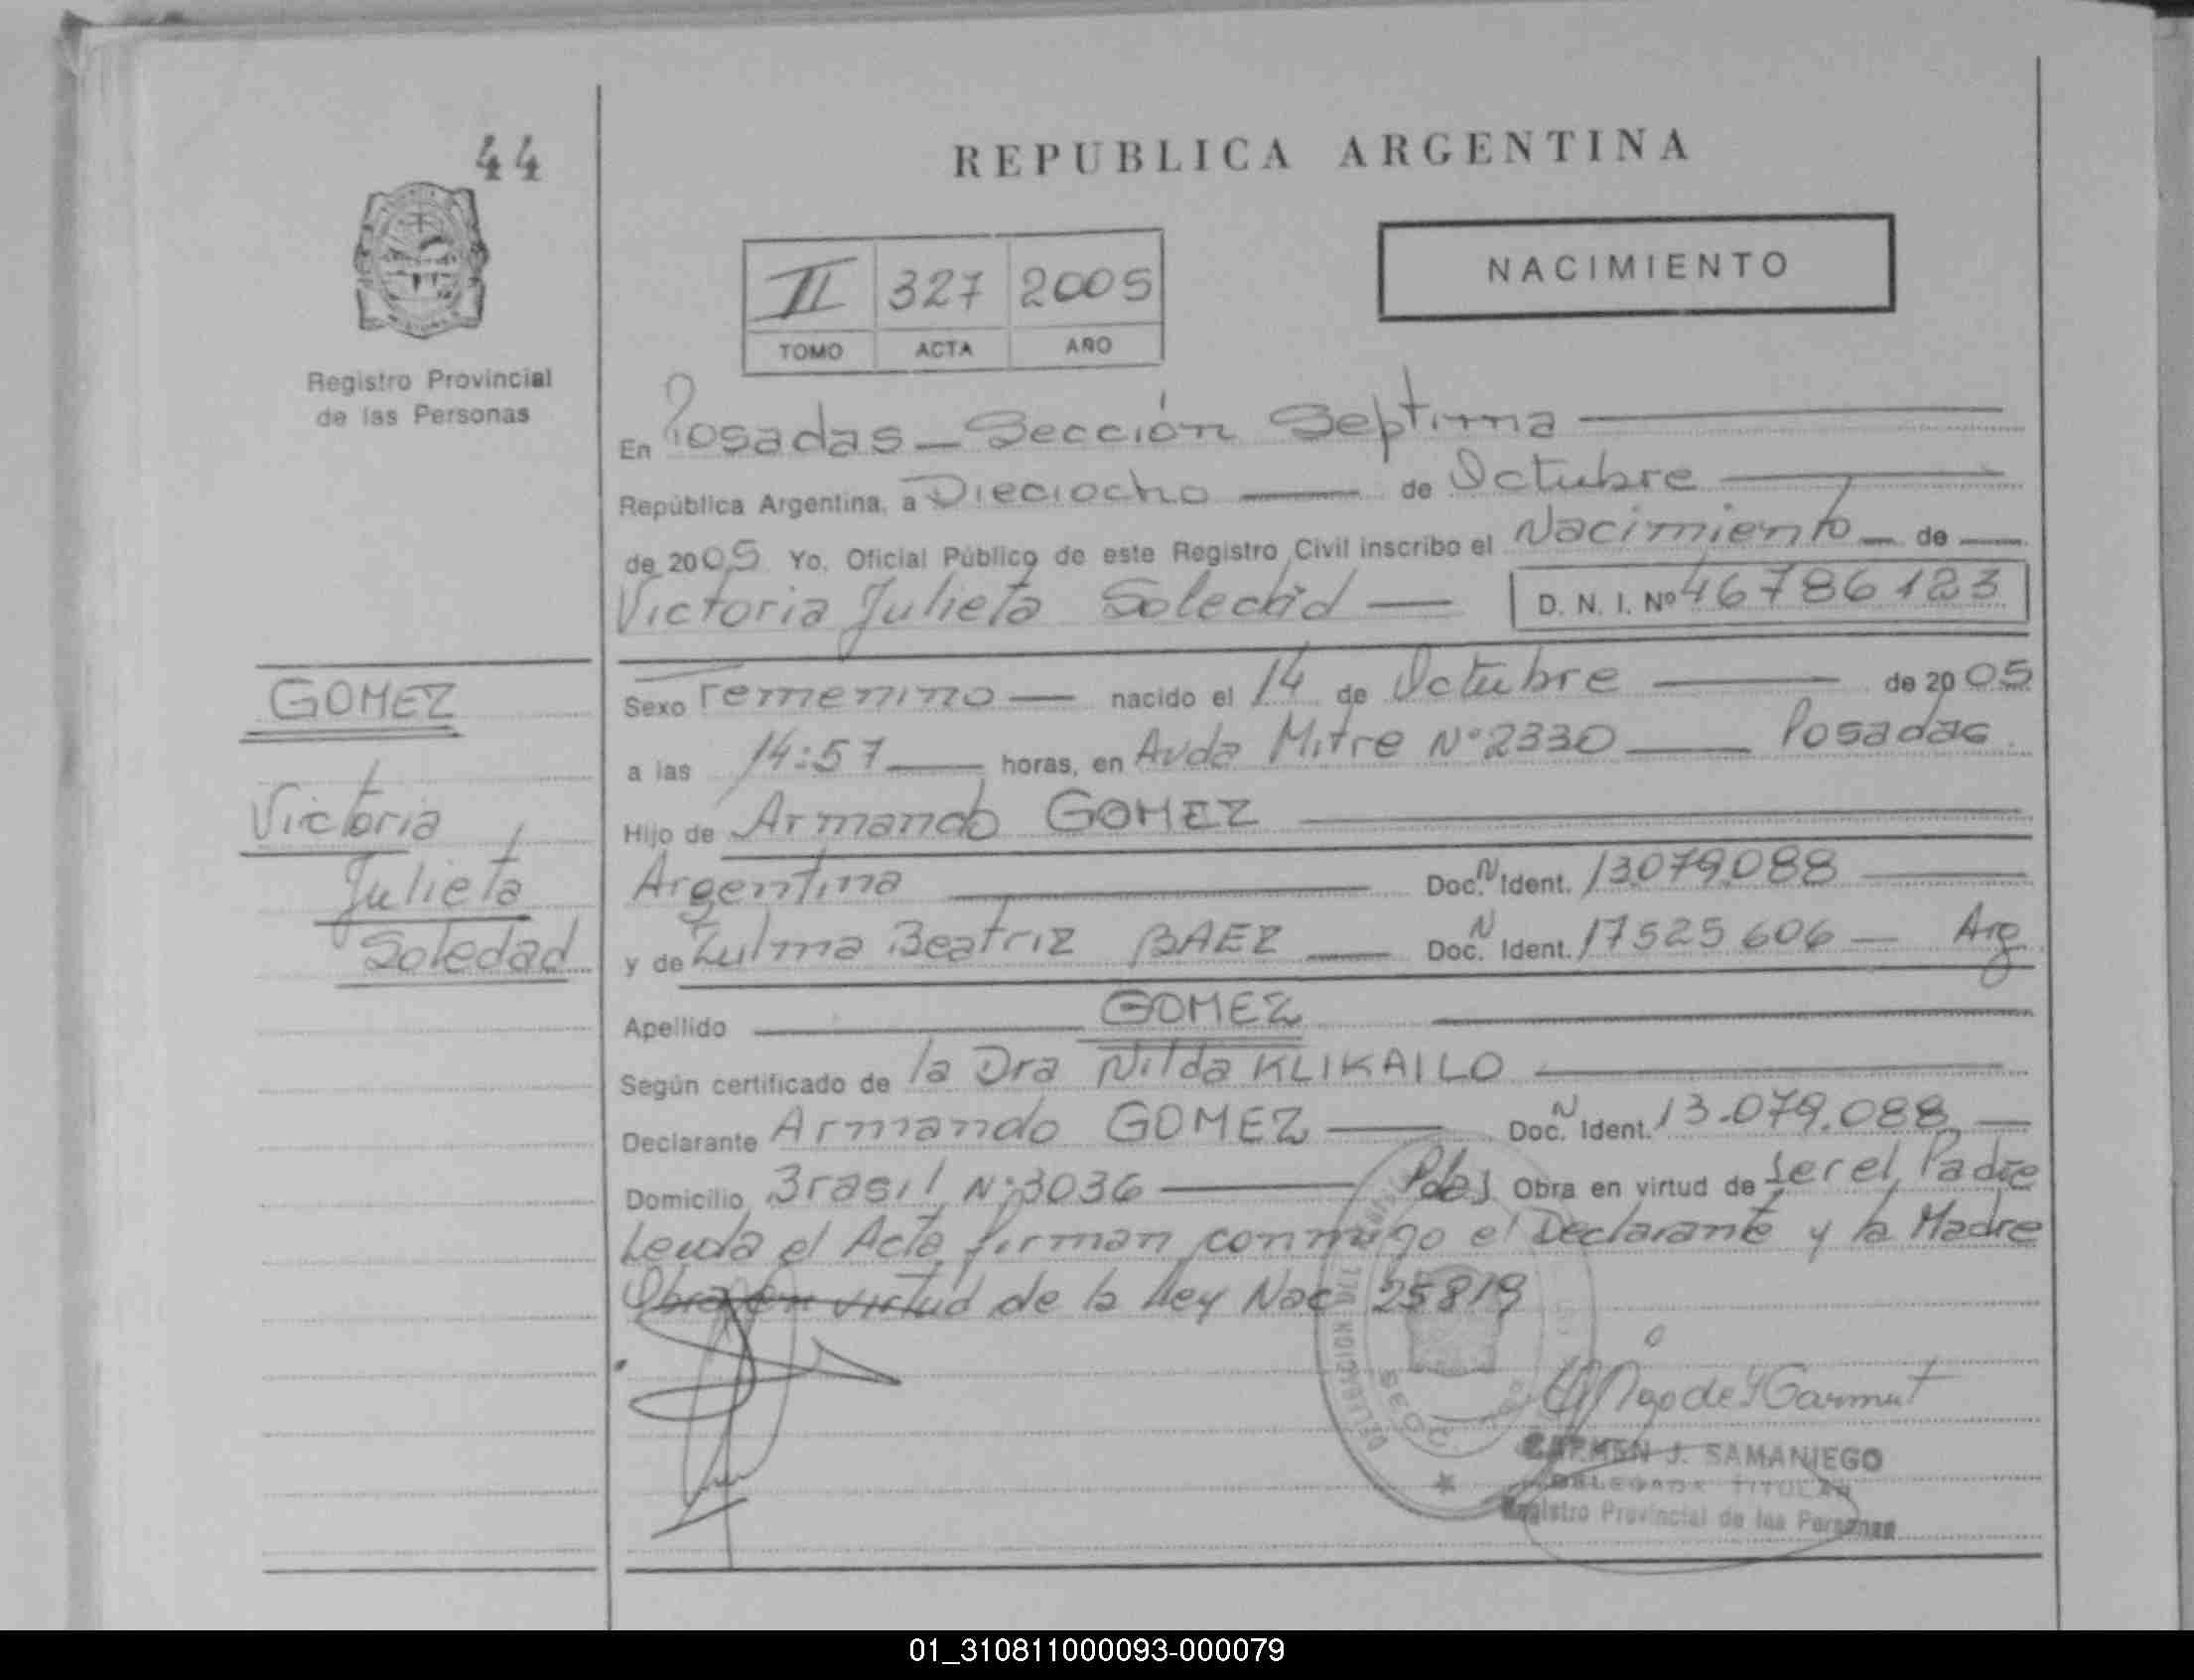 44
REPUBLICA ARGENTINA
II 327 2005
TOMO ACTA AÑO
NACIMIENTO
Registro Provincial
de las Personas
En Posadas - Sección Septima
República Argentina, a Dieciocho de Octubre
de 2005 Yo, Oficial Público de este Registro Civil inscribo el Nacimiento de
Victoria Julieta Soledad D. N. I. Nº 46786123
GOMEZ
Victoria
Julieta
Soledad
Sexo Femenino nacido el 14 de Octubre de 2005
a las 14:57 horas, en Avda Mitre Nº 2330 Posadas
Hijo de Armando GOMEZ
Argentina Doc. N Ident. 13.079.088
y de Zulma Beatriz BAEZ Doc. N Ident. 17525606 - Arg
Apellido GOMEZ
Según certificado de la Dra Nilda KLIKAILO
Declarante Armando GOMEZ Doc. N Ident. 13.079.088
Domicilio Brasil Nº 3036 Pdas Obra en virtud de ser el Padre
Leida el Acta firman conmigo el Declarante y la Madre
Obra en virtud de la Ley Nac 25819
CARMEN J. SAMANIEGO
DELEGADA TITULAR
Registro Provincial de las Personas
01_310811000093-000079